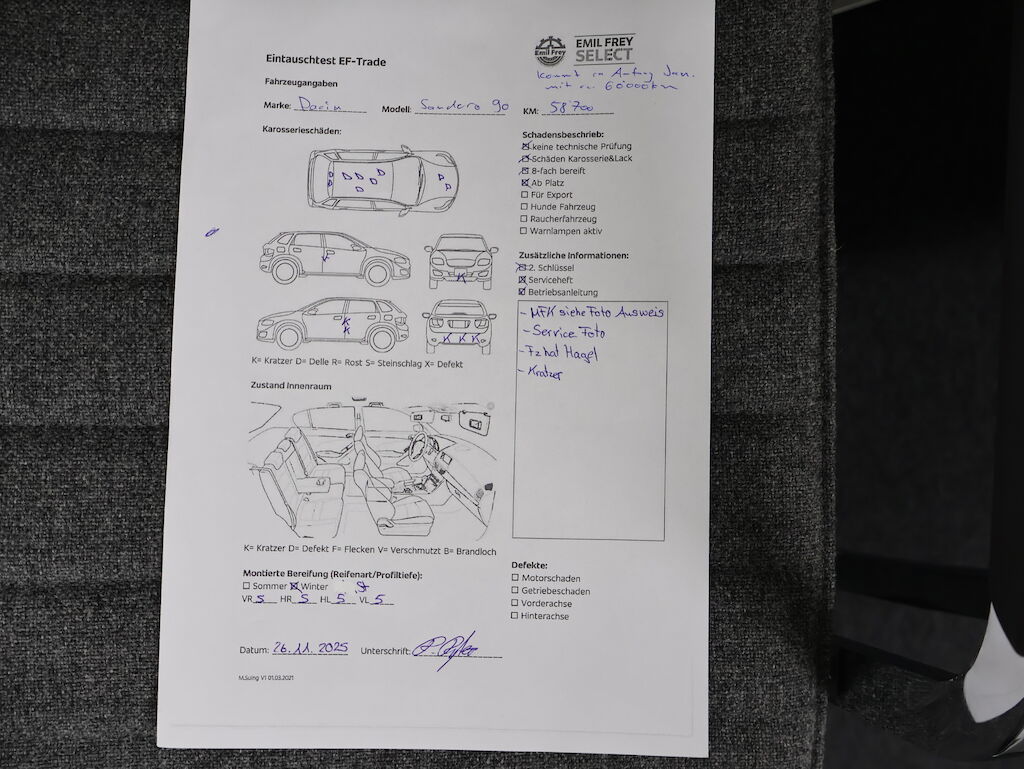 Emil Frey
EMIL FREY
SELECT
Eintauschtest EF-Trade
kommt ca Anfang Jan.
mit ca. 60'000km
Fahrzeugangaben
Marke: Dacia Modell: Sandero 90 KM: 58'700
Karosserieschäden:
D D D D D D D D D D
V
K
K
K
K K K
K= Kratzer D= Delle R= Rost S= Steinschlag X= Defekt
Schadensbeschrieb:
keine technische Prüfung
Schäden Karosserie&Lack
8-fach bereift
Ab Platz
Für Export
Hunde Fahrzeug
Raucherfahrzeug
Warnlampen aktiv
Zusätzliche Informationen:
2. Schlüssel
Serviceheft
Betriebsanleitung
- MFK siehe Foto Ausweis
- Service Foto
- Fz hat Hagel
- Kratzer
Zustand Innenraum
K= Kratzer D= Defekt F= Flecken V= Verschmutzt B= Brandloch
Montierte Bereifung (Reifenart/Profiltiefe):
Sommer Winter St
VR 5 HR 5 HL 5 VL 5
Defekte:
Motorschaden
Getriebeschaden
Vorderachse
Hinterachse
Datum: 26.11.2025 Unterschrift:
M.Suing V1 01.03.2021